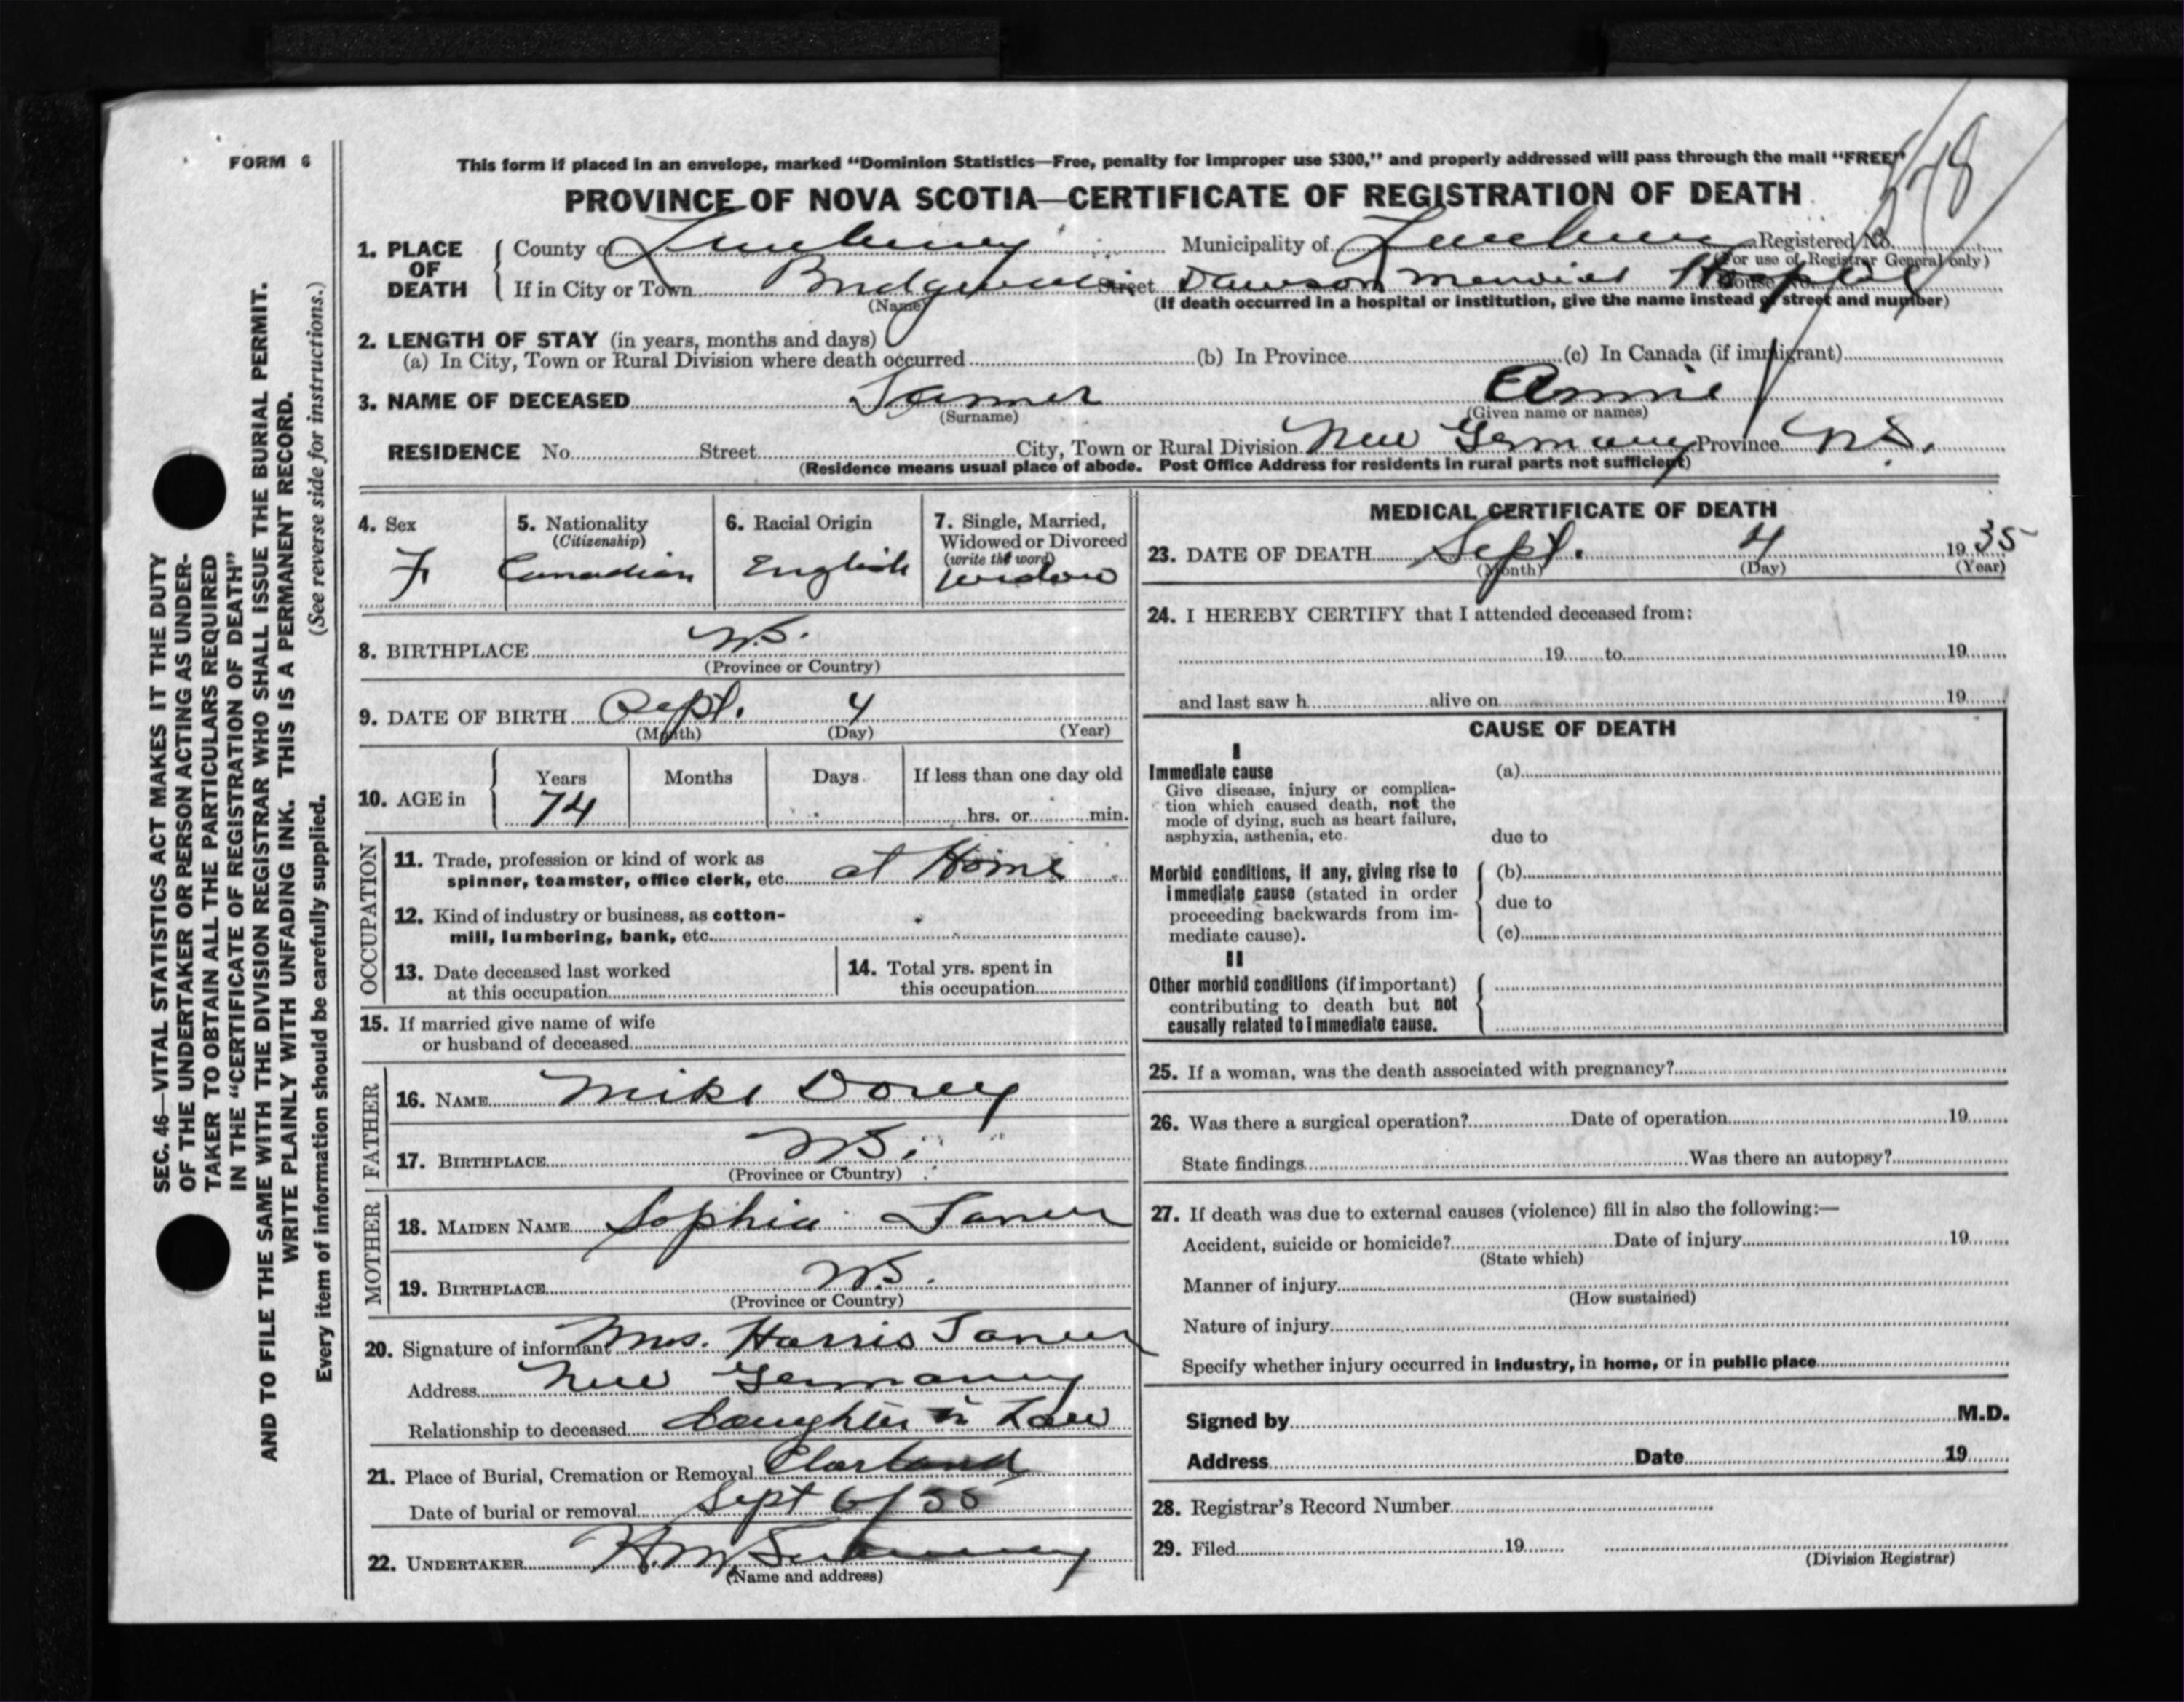 FORM 6
This form if placed in an envelope, marked "Dominion Statistics—Free, penalty for improper use $300," and properly addressed will pass through the mail "FREE"
PROVINCE OF NOVA SCOTIA—CERTIFICATE OF REGISTRATION OF DEATH
1. PLACE OF DEATH
County of Lunenburg Municipality of Lunenburg Registered No.
(For use of Registrar General only)
If in City or Town Bridgewater Street Dawson Memorial Hospital House No.
(Name) (If death occurred in a hospital or institution, give the name instead of street and number)
2. LENGTH OF STAY (in years, months and days)
(a) In City, Town or Rural Division where death occurred (b) In Province (c) In Canada (if immigrant)
3. NAME OF DECEASED Tanner Annie
(Surname) (Given name or names)
RESIDENCE No. Street City, Town or Rural Division New Germany Province N.S.
(Residence means usual place of abode. Post Office Address for residents in rural parts not sufficient)
4. Sex
F
5. Nationality
(Citizenship)
Canadian
6. Racial Origin
English
7. Single, Married,
Widowed or Divorced
(write the word)
widow
8. BIRTHPLACE N.S.
(Province or Country)
9. DATE OF BIRTH Sept. 4
(Month) (Day) (Year)
10. AGE in
Years Months Days If less than one day old
74 hrs. or min.
OCCUPATION
11. Trade, profession or kind of work as
spinner, teamster, office clerk, etc. at Home
12. Kind of industry or business, as cotton-
mill, lumbering, bank, etc.
13. Date deceased last worked
at this occupation
14. Total yrs. spent in
this occupation
15. If married give name of wife
or husband of deceased
FATHER
16. NAME Mike Dorey
17. BIRTHPLACE N.S.
(Province or Country)
MOTHER
18. MAIDEN NAME Sophia Tanner
19. BIRTHPLACE N.S.
(Province or Country)
20. Signature of informant Mrs. Harris Tanner
Address New Germany
Relationship to deceased daughter in Law
21. Place of Burial, Cremation or Removal
Date of burial or removal Sept 6/35
22. UNDERTAKER H.M.
(Name and address)
MEDICAL CERTIFICATE OF DEATH
23. DATE OF DEATH Sept. 4 1935
(Month) (Day) (Year)
24. I HEREBY CERTIFY that I attended deceased from:
19 to 19
and last saw h alive on 19
CAUSE OF DEATH
I
Immediate cause (a)
Give disease, injury or complica-
tion which caused death, not the
mode of dying, such as heart failure,
asphyxia, asthenia, etc. due to
Morbid conditions, if any, giving rise to (b)
immediate cause (stated in order due to
proceeding backwards from im-
mediate cause). (c)
II
Other morbid conditions (if important)
contributing to death but not
causally related to immediate cause.
25. If a woman, was the death associated with pregnancy?
26. Was there a surgical operation? Date of operation 19
State findings Was there an autopsy?
27. If death was due to external causes (violence) fill in also the following:—
Accident, suicide or homicide? Date of injury 19
(State which)
Manner of injury
(How sustained)
Nature of injury
Specify whether injury occurred in industry, in home, or in public place
Signed by M.D.
Address Date 19
28. Registrar's Record Number
29. Filed 19
(Division Registrar)
SEC. 46—VITAL STATISTICS ACT MAKES IT THE DUTY
OF THE UNDERTAKER OR PERSON ACTING AS UNDER-
TAKER TO OBTAIN ALL THE PARTICULARS REQUIRED
IN THE "CERTIFICATE OF REGISTRATION OF DEATH"
AND TO FILE THE SAME WITH THE DIVISION REGISTRAR WHO SHALL ISSUE THE BURIAL PERMIT.
WRITE PLAINLY WITH UNFADING INK. THIS IS A PERMANENT RECORD.
Every item of information should be carefully supplied. (See reverse side for instructions.)